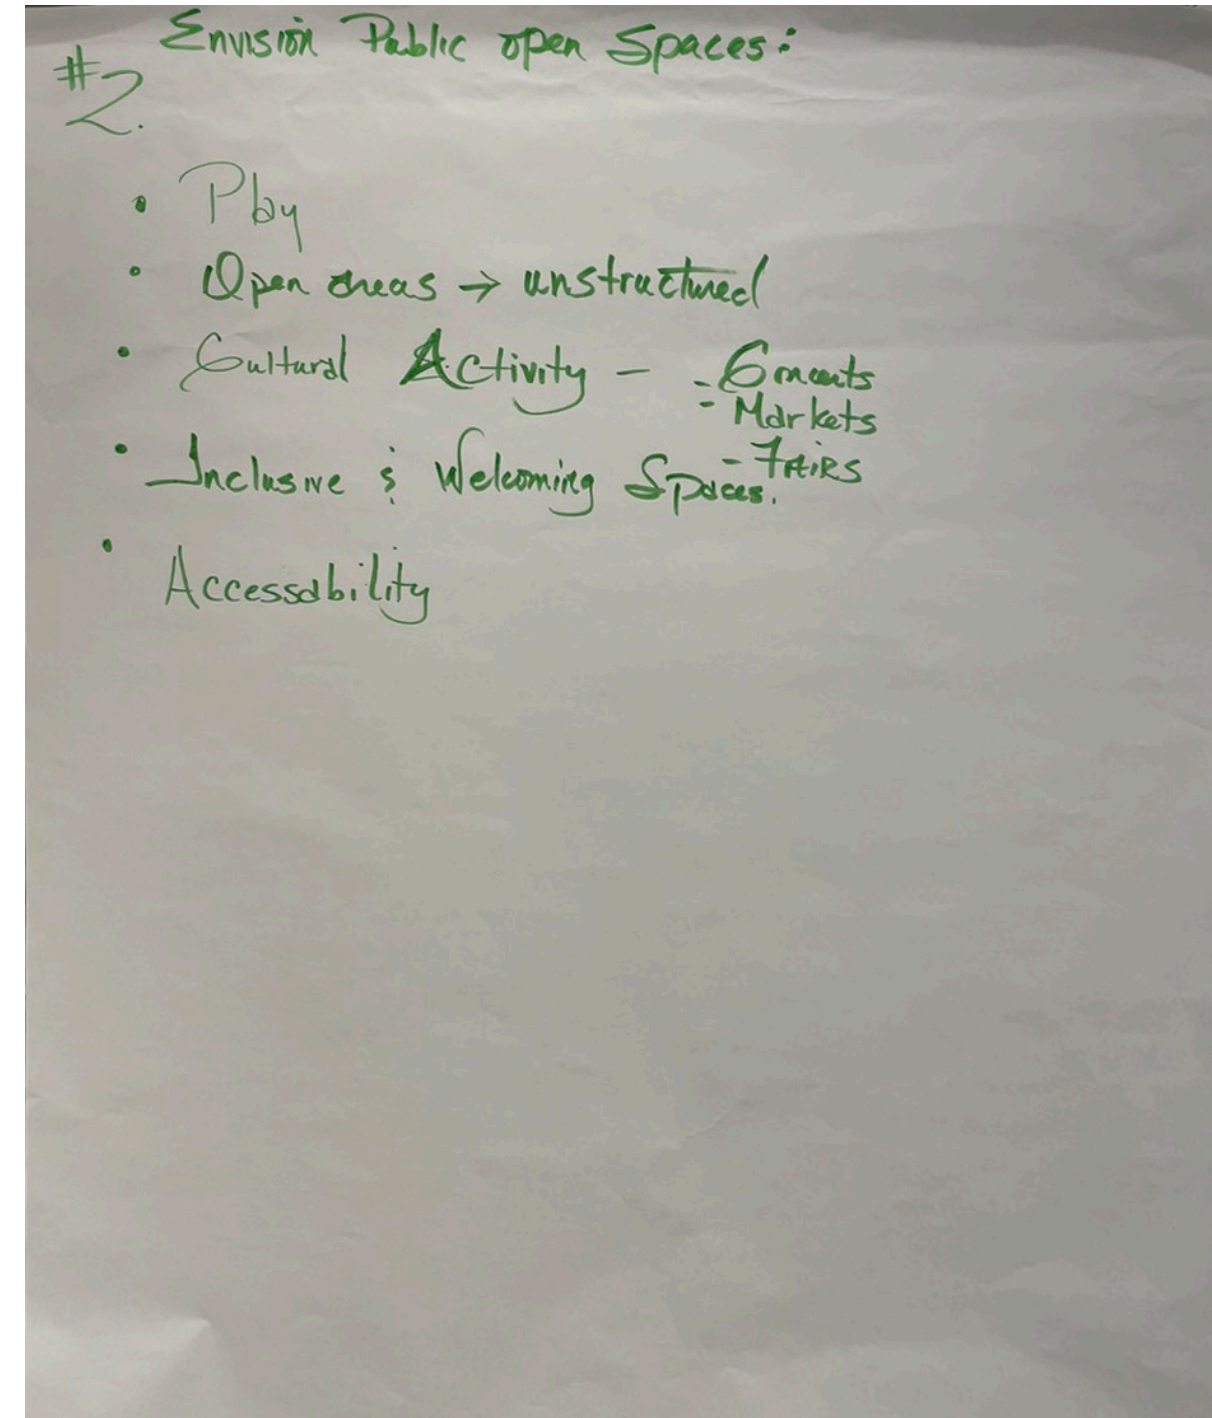 Envision Public open Spaces:
#2.
• Play
• Open areas → unstructured
• Cultural Activity -
- Markets
- FAIRS
• Inclusive & Welcoming Spaces.
• Accessability